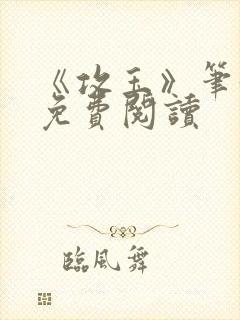 《攻玉》筆
免費閱讀
臨風舞